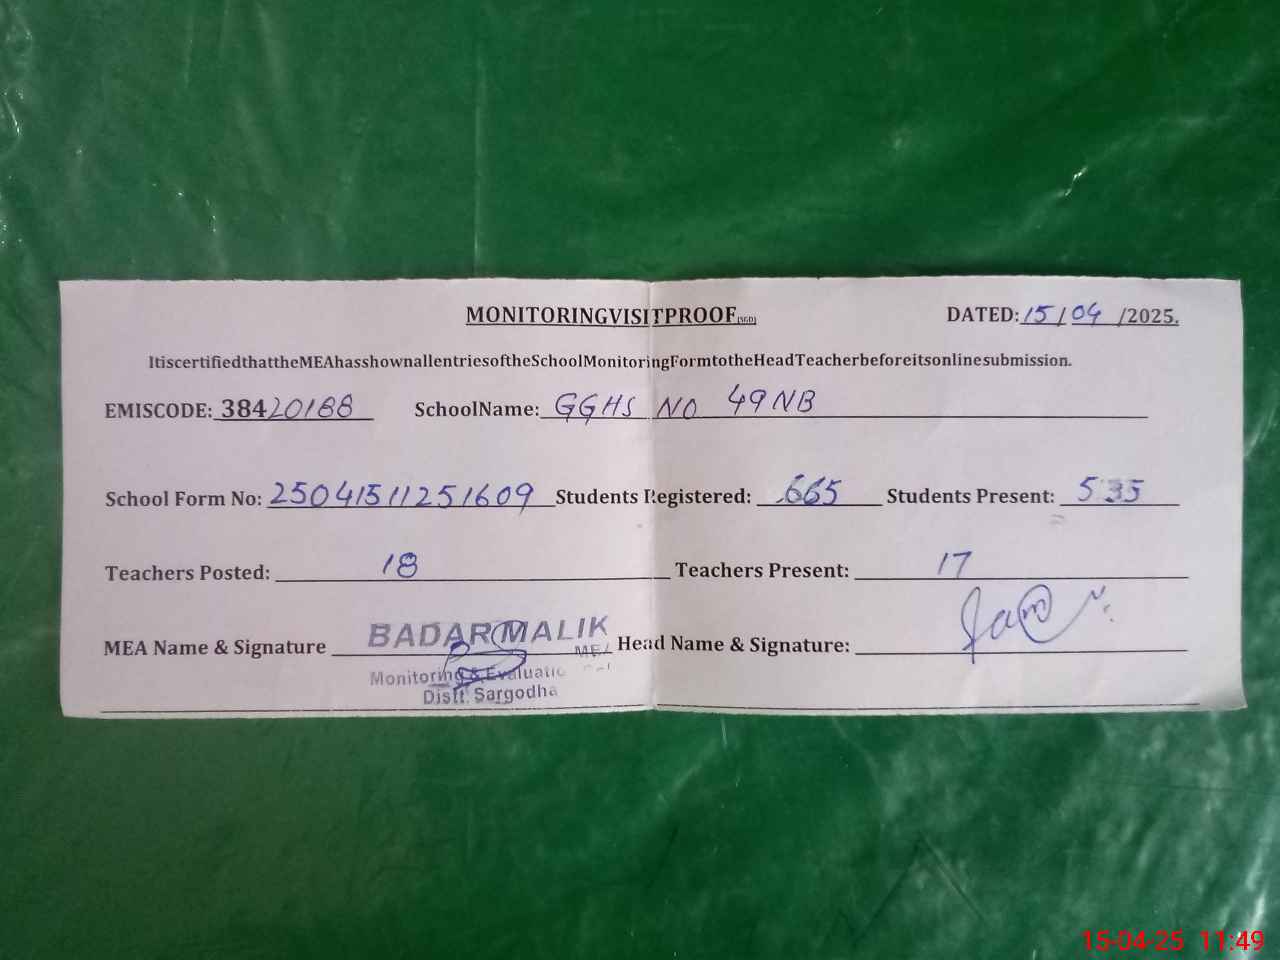 MONITORINGVISITPROOF(SGD) DATED: 15/04/2025.
ItiscertifiedthattheMEAhasshownallentriesoftheSchoolMonitoringFormtotheHeadTeacherbeforeitsonlinesubmission.
EMISCODE: 38420188 SchoolName: GGHS NO 49NB
School Form No: 25041511251609 Students Registered: 665 Students Present: 535
Teachers Posted: 18 Teachers Present: 17
MEA Name & Signature BADAR MALIK Head Name & Signature:
MEA
Monitoring & Evaluatio
Distt. Sargodha
15-04-25 11:49